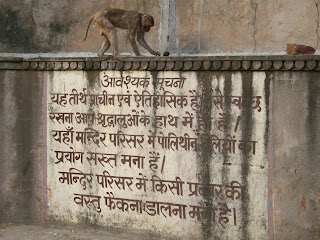 आवश्यक सूचना
यह तीर्थ प्राचीन एवं ऐतिहासिक है इसे स्वच्छ
रखना आप श्रृद्धालुओं के हाथ में है।
यहाँ मन्दिर परिसर में पालिथीन का
प्रयोग सख्त मना है।
मन्दिर परिसर में किसी प्रकार की
वस्तु फेंकना डालना मना है।